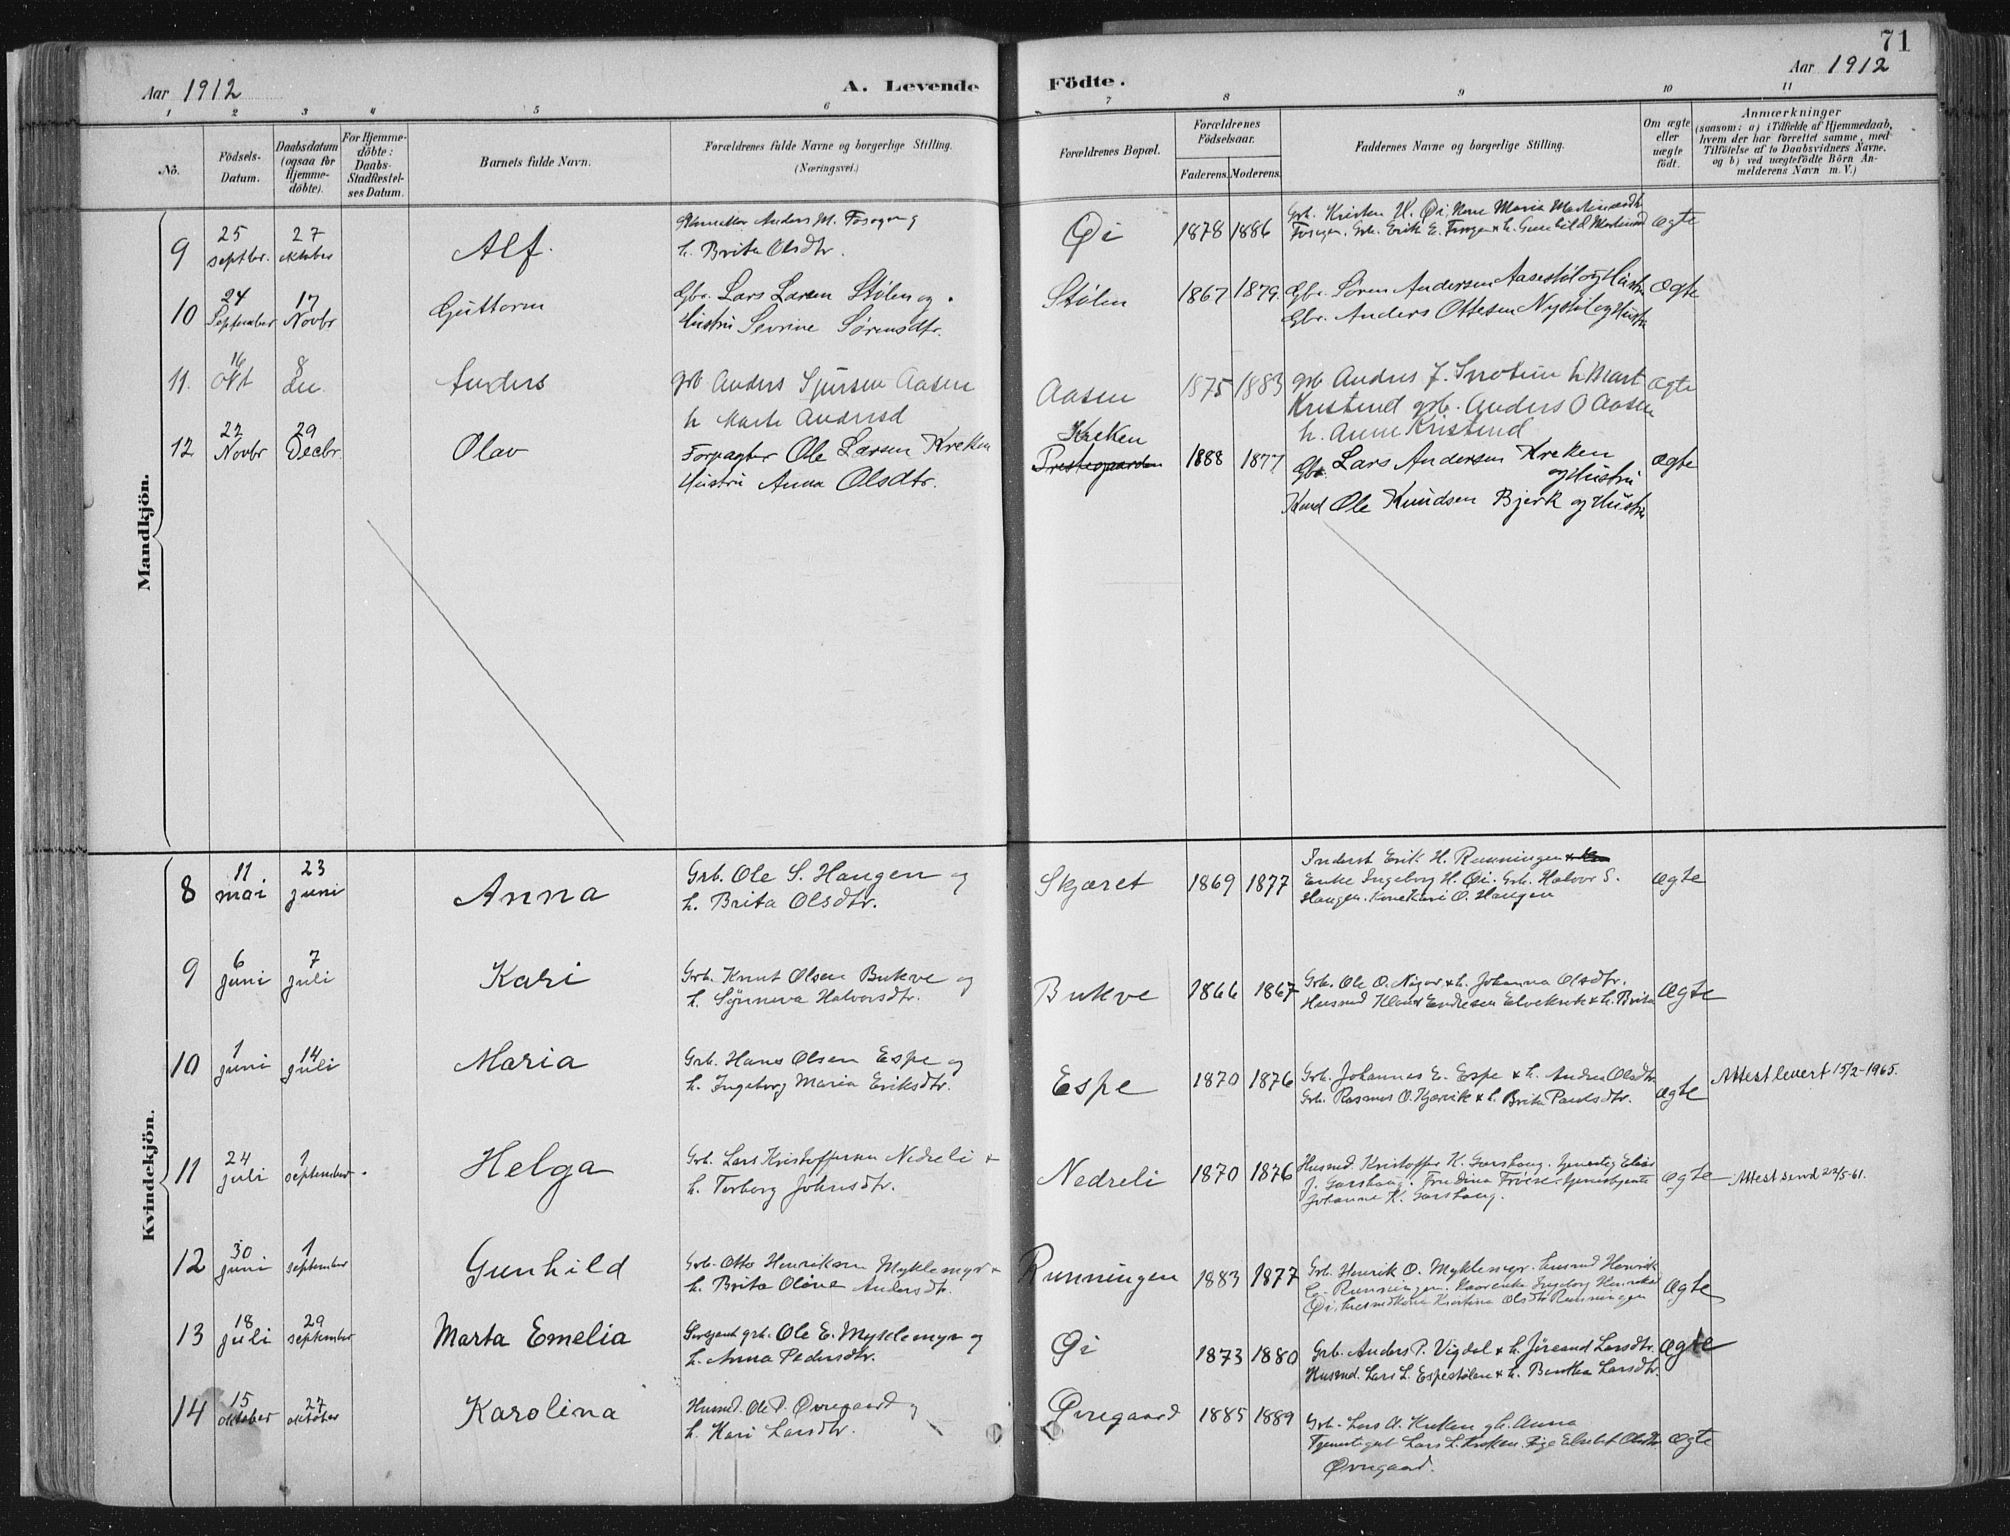 71
Aar 1912
A. Levende
Födte.
Aar 1912
1 2 3 4 5 6 7 8 9 10 11
No.
Födsels-Datum.
Daabsdatum (ogsaa for Hjemme-döbte).
For Hjemme-döbte: Daabs-Stadfæstel-ses Datum.
Barnets fulde Navn.
Forældrenes fulde Navne og borgerlige Stilling.
(Næringsvei.)
Forældrenes Bopæl.
Forældrenes Födselsaar.
Faderens. Moderens.
Faddernes Navne og borgerlige Stilling.
Om ægte eller uægte födt.
Anmærkninger
(saasom: a) i Tilfælde af Hjemmedaab,
hvem der har forrettet samme, med
Tilföielse af to Daabsvidners Navne,
og b) ved uægtefödte Börn An-
melderens Navn m. V.)
Mandkjön.
9 25 septbr. 27 oktober Alf. Anders M. Fosøgen og
h. Brita Olsdtr.
Øi 1878 1886 Grb. Kristen H. Øi, Maria
Grb. Erik E. h. Gunhild ægte
10 24 September 17 Novbr Guttorm Gbr. Lars Larsen Stølen og
Hustru Sevrine Sørensdtr.
Stølen 1867 1879. Gbr. Søren Andersen Aasestøl og Hustru ægte
Gbr. Anders Ottesen Nystøl og Hustru
11. 16 Okt 8 de Anders grb Anders Sjursen Aasen
h Marte Andersd
Aasen 1875 1883 grb Anders J. h Mart ægte
Kristend grb. Anders O Aasen
h. Anne Kristend
12 22 Novbr 29 Decbr Olav Forpagter Ole Larsen Kreken
Hustru Anna Olsdtr.
Kreken
Prestegaarden 1888 1877 Gbr. Lars Andersen Kreken
og Hustru ægte
Ole Knudsen Bjerk og Hustru
Kvindekjön.
8 11 mai 23 juni Anna Grb. Ole S. Haugen og
h. Brita Olsdtr.
Skjæret 1869 1877 Inderst Erik H. Runningen
Enke Ingeborg H. Øi. Grb. Halvor S.
Haugen. Kone Kari O. Haugen ægte
9 6 juni 7 juli Kari Grb. Knut Olsen Bukve og
h. Synneva Halvorsdtr.
Bukve 1866 1867 Grb. Ole O. h. Johanna Olsdtr.
Husmd Endresen & h. Brita ægte
10 1 juni 14 juli Maria Grb. Hans Olsen Espe og
h. Ingeborg Maria Eriksdtr.
Espe 1870 1876 Grb. Johannes E. Espe & h. Andrea Olsdtr
Grb. Rasmus O. Kjærvik & h. Brita Paulsdtr. ægte
Attest levert 15/2-1965.
11 24 juli 1 september Helga Grb. Lars Kristoffersen Nedreli &
h. Torborg Johnsdtr.
Nedreli 1870 1876 Husmd. Kristoffer K. Garshaug.
J. Garshaug. Fru Dina
Johanne K. Garshaug. ægte
Attest send 22/5-61.
12 30 juni 1 september Gunhild Grb. Otto Henriksen Myklemyr &
h. Brita Oline Andersdtr.
Runningen 1883 1877 Grb. Henrik O. Myklemyr. husmd Henrik
Runningen. Ingeborg
Øi. Kristina Olsdtr Runningen ægte
13 18 juli 29 september Marta Emelia Sersjant grb. Ole E. Myklemyr og
h. Anna Pedersdtr.
Øi 1873 1880 Grb. Anders P. Vigdal & h. Jørand Larsdtr.
Husmd. Lars L. Espestølen & h. Bertha Larsdtr. ægte
14 15 oktober 27 oktober Karolina Husmd. Ole P. Øvregaard og
h. Kari Larsdtr.
Øvregaard 1885 1889 Grb. Lars A. Kreken h. Anna
Tjenestegut Lars L. Kreken. Pige Olsdtr
Øvregaard. ægte